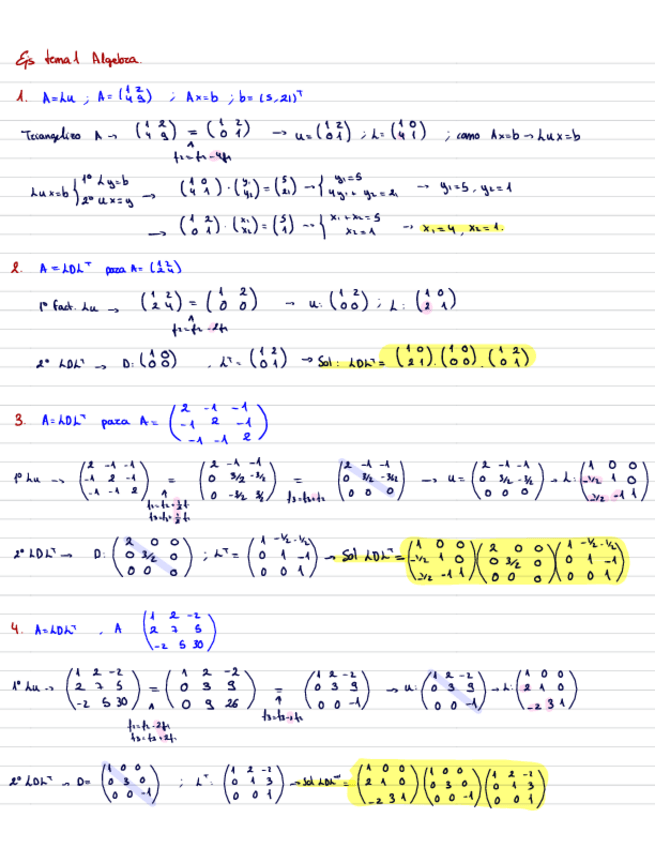 Ejs tema 1 Algebra.
1. A=LU ; A= (1 2 / 4 9) ; Ax=b ; b= (5,21)ᵀ
Triangulizo A → (1 2 / 4 9) = (1 2 / 0 1) → U= (1 2 / 0 1) ; L= (1 0 / 4 1) ; como Ax=b → LUx=b
f2=f2-4f1
LUx=b { 1º Ly=b / 2º Ux=y → (1 0 / 4 1) · (y1 / y2) = (5 / 21) → { y1=5 / 4y1+y2=21 → y1=5, y2=1
→ (1 2 / 0 1) · (x1 / x2) = (5 / 1) → { x1+x2=5 / x2=1 → x1=4, x2=1.
2. A=LDLᵀ para A= (1 2 / 2 4)
1º fact. LU → (1 2 / 2 4) = (1 2 / 0 0) → U: (1 2 / 0 0) ; L: (1 0 / 2 1)
f2=f2-2f1
2º LDLᵀ → D: (1 0 / 0 0) , Lᵀ= (1 2 / 0 1) → Sol: LDLᵀ= (1 0 / 2 1) · (1 0 / 0 0) · (1 2 / 0 1)
3. A=LDLᵀ para A= (2 -1 -1 / -1 2 -1 / -1 -1 2)
1º LU → (2 -1 -1 / -1 2 -1 / -1 -1 2) = (2 -1 -1 / 0 3/2 -3/2 / 0 -3/2 3/2) = (2 -1 -1 / 0 3/2 -3/2 / 0 0 0) → U= (2 -1 -1 / 0 3/2 -3/2 / 0 0 0) → L: (1 0 0 / -1/2 1 0 / -1/2 -1 1)
f3=f3+f2
2º LDLᵀ → D: (2 0 0 / 0 3/2 0 / 0 0 0) ; Lᵀ= (1 -1/2 -1/2 / 0 1 -1 / 0 0 1) → Sol LDLᵀ= (1 0 0 / -1/2 1 0 / -1/2 -1 1) (2 0 0 / 0 3/2 0 / 0 0 0) (1 -1/2 -1/2 / 0 1 -1 / 0 0 1)
4. A=LDLᵀ , A (1 2 -2 / 2 7 5 / -2 5 30)
1º LU → (1 2 -2 / 2 7 5 / -2 5 30) = (1 2 -2 / 0 3 9 / 0 9 26) = (1 2 -2 / 0 3 9 / 0 0 -1) → U: (1 2 -2 / 0 3 9 / 0 0 -1) → L: (1 0 0 / 2 1 0 / -2 3 1)
f2=f2-2f1
2º LDLᵀ → D= (1 0 0 / 0 3 0 / 0 0 -1) ; Lᵀ: (1 2 -2 / 0 1 3 / 0 0 1) → Sol LDLᵀ= (1 0 0 / 2 1 0 / -2 3 1) (1 0 0 / 0 3 0 / 0 0 -1) (1 2 -2 / 0 1 3 / 0 0 1)